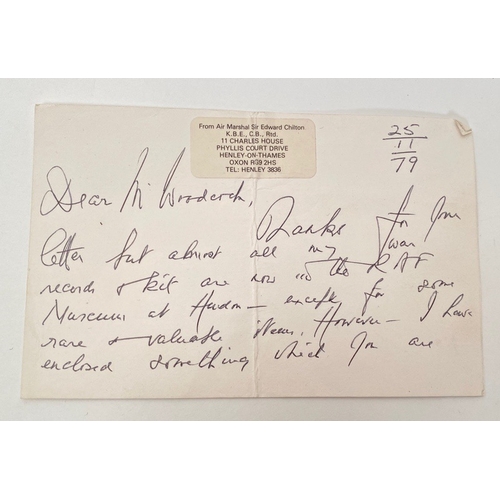 From Air Marshal Sir Edward Chilton
K.B.E., C.B., Rtd.
11 CHARLES HOUSE
PHYLLIS COURT DRIVE
HENLEY-ON-THAMES
OXON RG9 2HS
TEL: HENLEY 3836
25
11
79
Dear Mr Woodcock,
Thanks for your
letter but almost all my war
records & kit are now in the RAF
Museum at Hendon — except for some
rare & valuable items. However — I have
enclosed something which you are